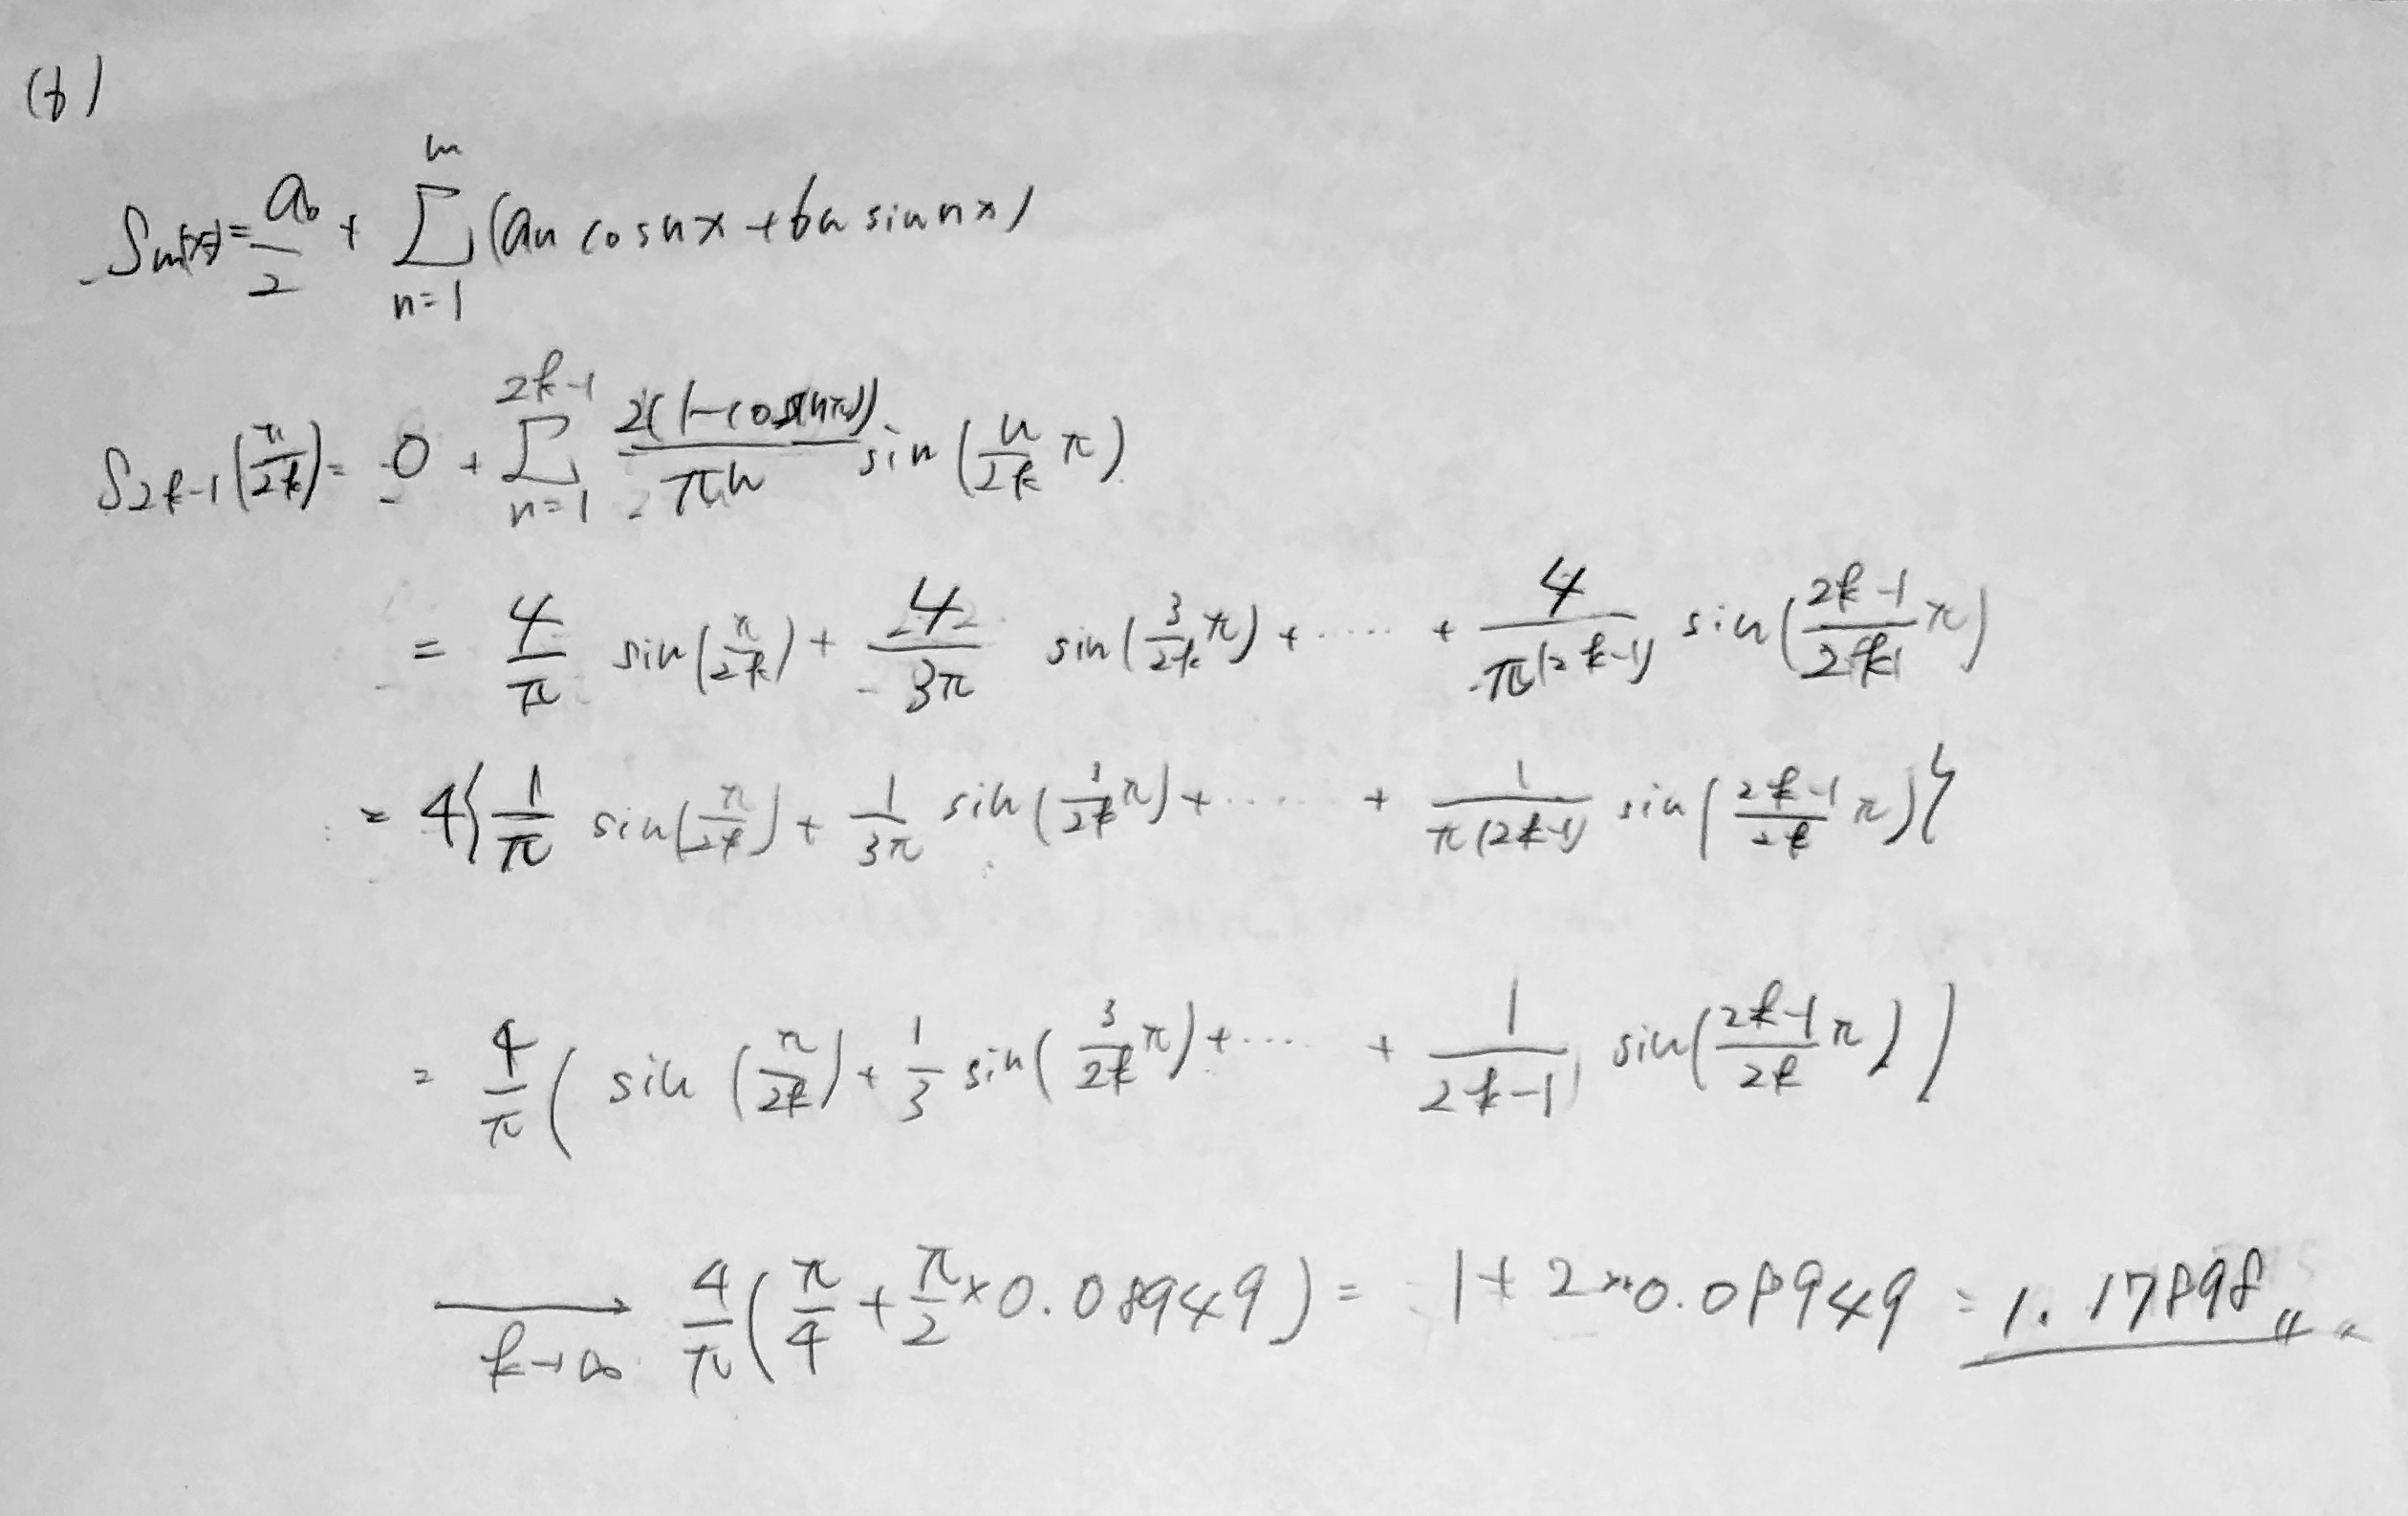 (b)
S_m(x) = a₀/2 + Σ_{n=1}^{m} (aₙ cos nx + bₙ sin nx)
S_{2k-1}(π/2k) = 0 + Σ_{n=1}^{2k-1} 2(1-cos(nπ))/πn sin(n/2k π)
= 4/π sin(π/2k) + 4/3π sin(3/2k π) + ..... + 4/π(2k-1) sin(2k-1/2k π)
= 4{1/π sin(π/2k) + 1/3π sin(3/2k π) + ..... + 1/π(2k-1) sin(2k-1/2k π)}
= 4/π ( sin(π/2k) + 1/3 sin(3/2k π) + .... + 1/2k-1 sin(2k-1/2k π) )
→_{k→∞} 4/π (π/4 + π/2 × 0.08949) = 1 + 2×0.08949 = 1.17898〃